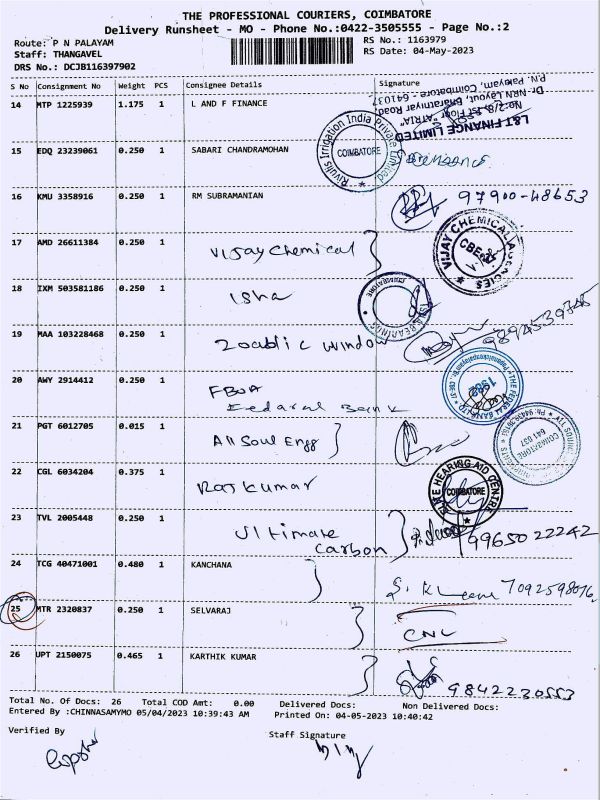 THE PROFESSIONAL COURIERS, COIMBATORE
Delivery Runsheet - MO - Phone No.:0422-3505555 - Page No.:2
Route: P N PALAYAM RS No.: 1163979
Staff: THANGAVEL RS Date: 04-May-2023
DRS No.: DCJB116397902
S No Consignment No Weight PCS Consignee Details Signature
14 MTP 1225939 1.175 1 L AND F FINANCE
L&T FINANCE LIMITED
No:2/8, 1st Floor "ATRIA"
Dr-NRN Layout, Bharathiyar Road,
P.N. Palayam, Coimbatore - 641037
Rivulis Irrigation India Private Limited
COIMBATORE
15 EDQ 23239061 0.250 1 SABARI CHANDRAMOHAN
16 KMU 3358916 0.250 1 RM SUBRAMANIAN 97900-48653
17 AMD 26611384 0.250 1 Vijay Chemical
VIJAY CHEMICAL AGENCIES
18 IXM 503581186 0.250 1 Isha
COIMBATORE
19 MAA 103228468 0.250 1 Window
20 AWY 2914412 0.250 1 FBOA
Fedaral Bank
1982
21 PGT 6012705 0.015 1 All Soul Engg
COIMBATORE
641 037
22 CGL 6034204 0.375 1 Rajkumar
HEARING AID CENTRE
COIMBATORE
23 TVL 2005448 0.250 1 Ultimate
Carbon 9965022242
24 TCG 40471001 0.480 1 KANCHANA 7092598076
25 MTR 2320837 0.250 1 SELVARAJ CNL
26 UPT 2150075 0.465 1 KARTHIK KUMAR 9842230553
Total No. Of Docs: 26 Total COD Amt: 0.00 Delivered Docs: Non Delivered Docs:
Entered By :CHINNASAMYMO 05/04/2023 10:39:43 AM Printed On :04-05-2023 10:40:42
Verified By Staff Signature